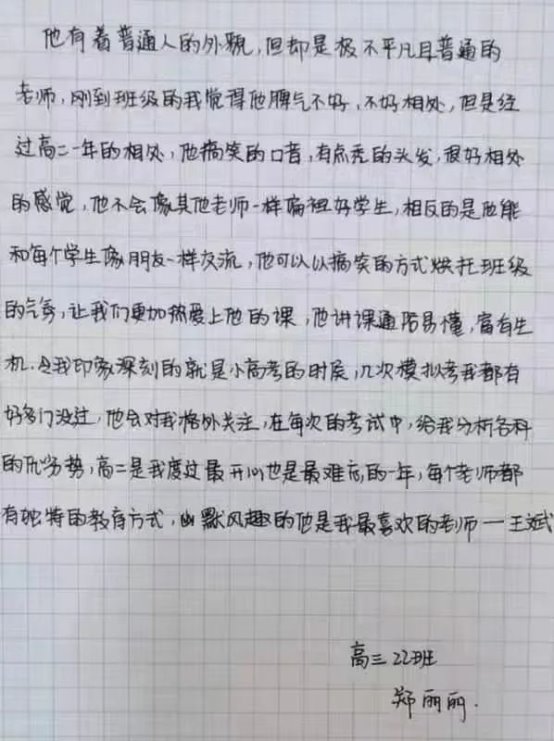 他有着普通人的外貌,但却是极不平凡且普通的
老师,刚到班级的我觉得他脾气不好,不好相处,但是经
过高二一年的相处,他搞笑的口音,有点秃的头发,很好相处
的感觉,他不会像其他老师一样偏袒好学生,相反的是他能
和每个学生像朋友一样交流,他可以以搞笑的方式烘托班级
的气氛,让我们更加热爱上他的课,他讲课通俗易懂,富有生
机.令我印象深刻的就是小高考的时候,几次模拟考我都有
好多门没过,他会对我格外关注,在每次的考试中,给我分析各科
的优劣势,高二是我度过最开心也是最难忘的一年,每个老师都
有独特的教育方式,幽默风趣的他是我最喜欢的老师一王斌
高三22班
郑丽丽.